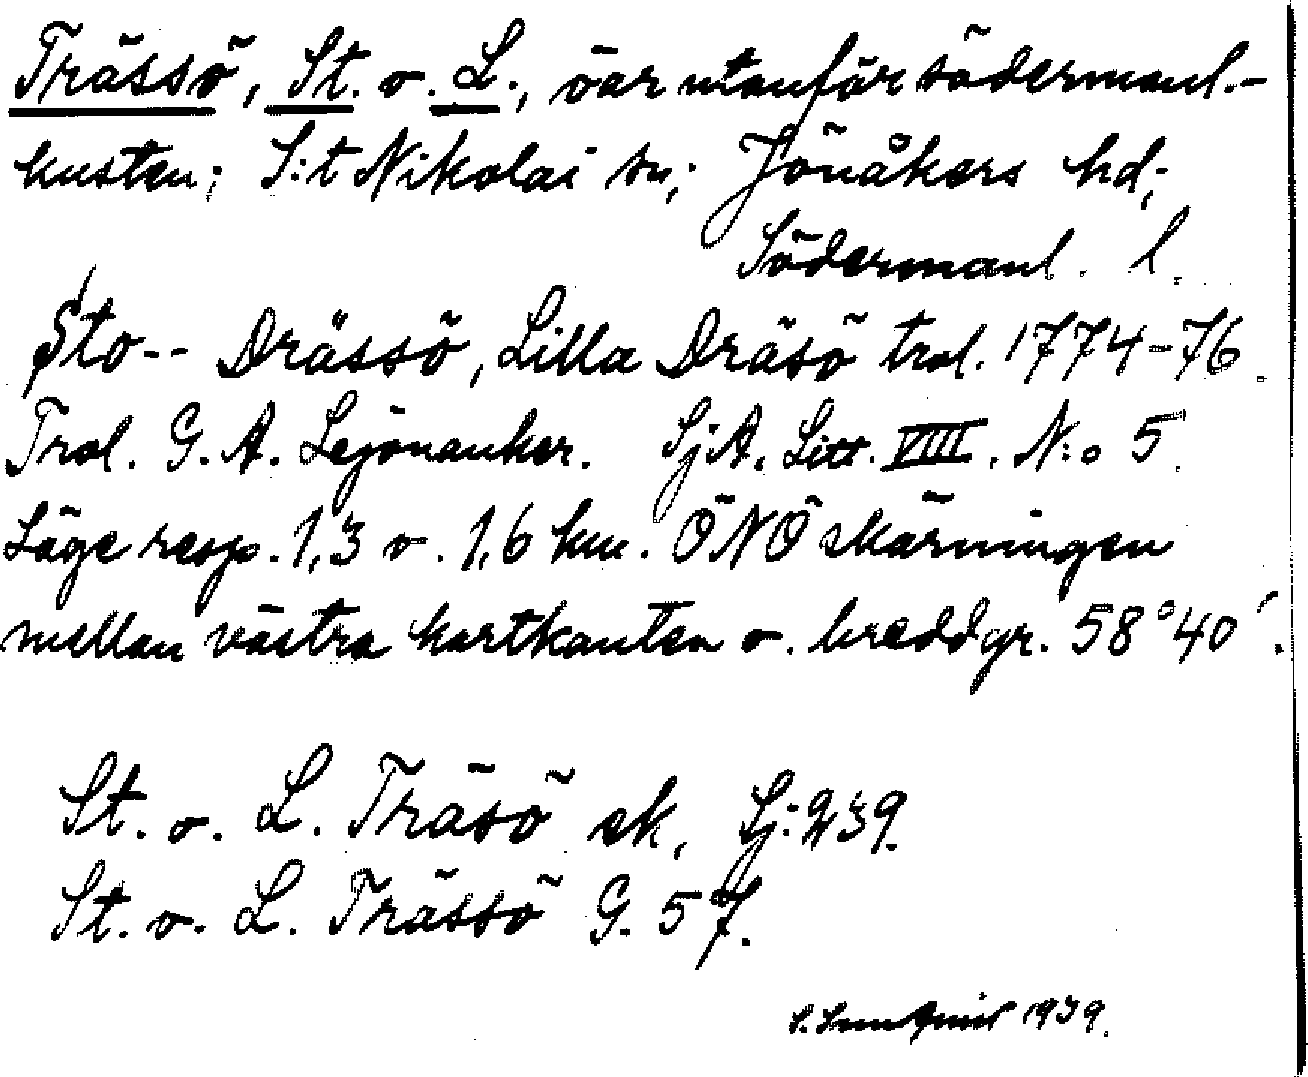 Trässö, St. o. L., öar utanför södermanl.-
kusten; S:t Nikolai sn; Jönåkers hd;
Södermanl. l.
Sto-- Drässö, Lilla Dräsö trol. 1774-76.
Trol. G. A. Lejonanker. SjA. Litt. VIIII. N:o 5.
Läge resp. 1,3 o. 1,6 km. ÖNÖ skärningen
mellan västra kartkanten o. breddgr. 58°40'.
St. o. L. Träsö sk, Sj: 239.
St. o. L. Trässö G. 57.
1939.